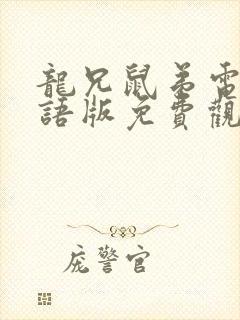 龍兄鼠弟電
語版免費觀
庞警官